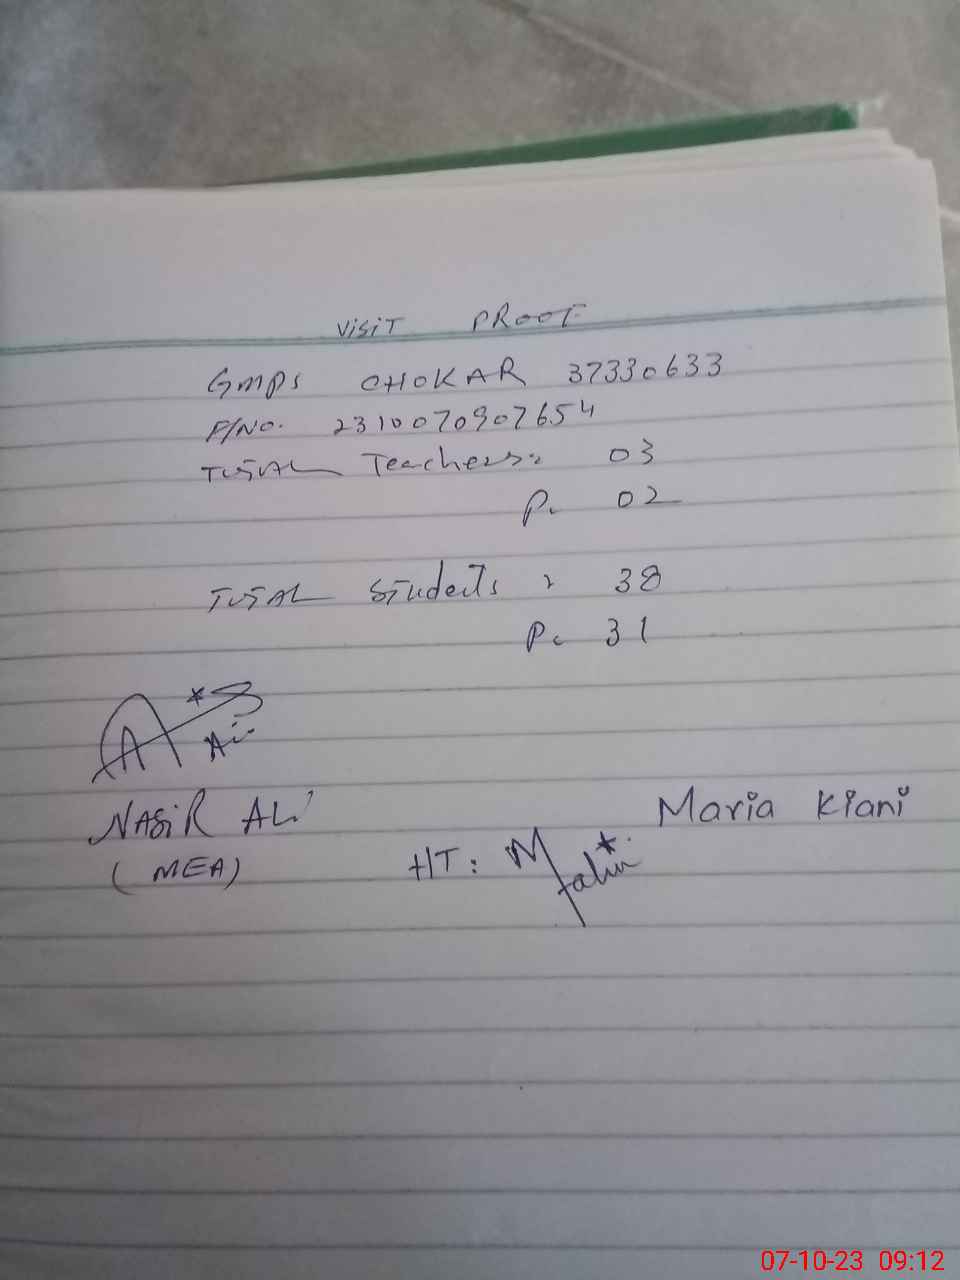 VISIT PROOF
GMPS CHOKAR 37330633
P/NO. 2310070907654
TOTAL Teachers: 03
P. 02
TOTAL Students : 38
P. 31
Ali
NASIR ALI
(MEA)
Maria Kiani
HT: M
07-10-23 09:12